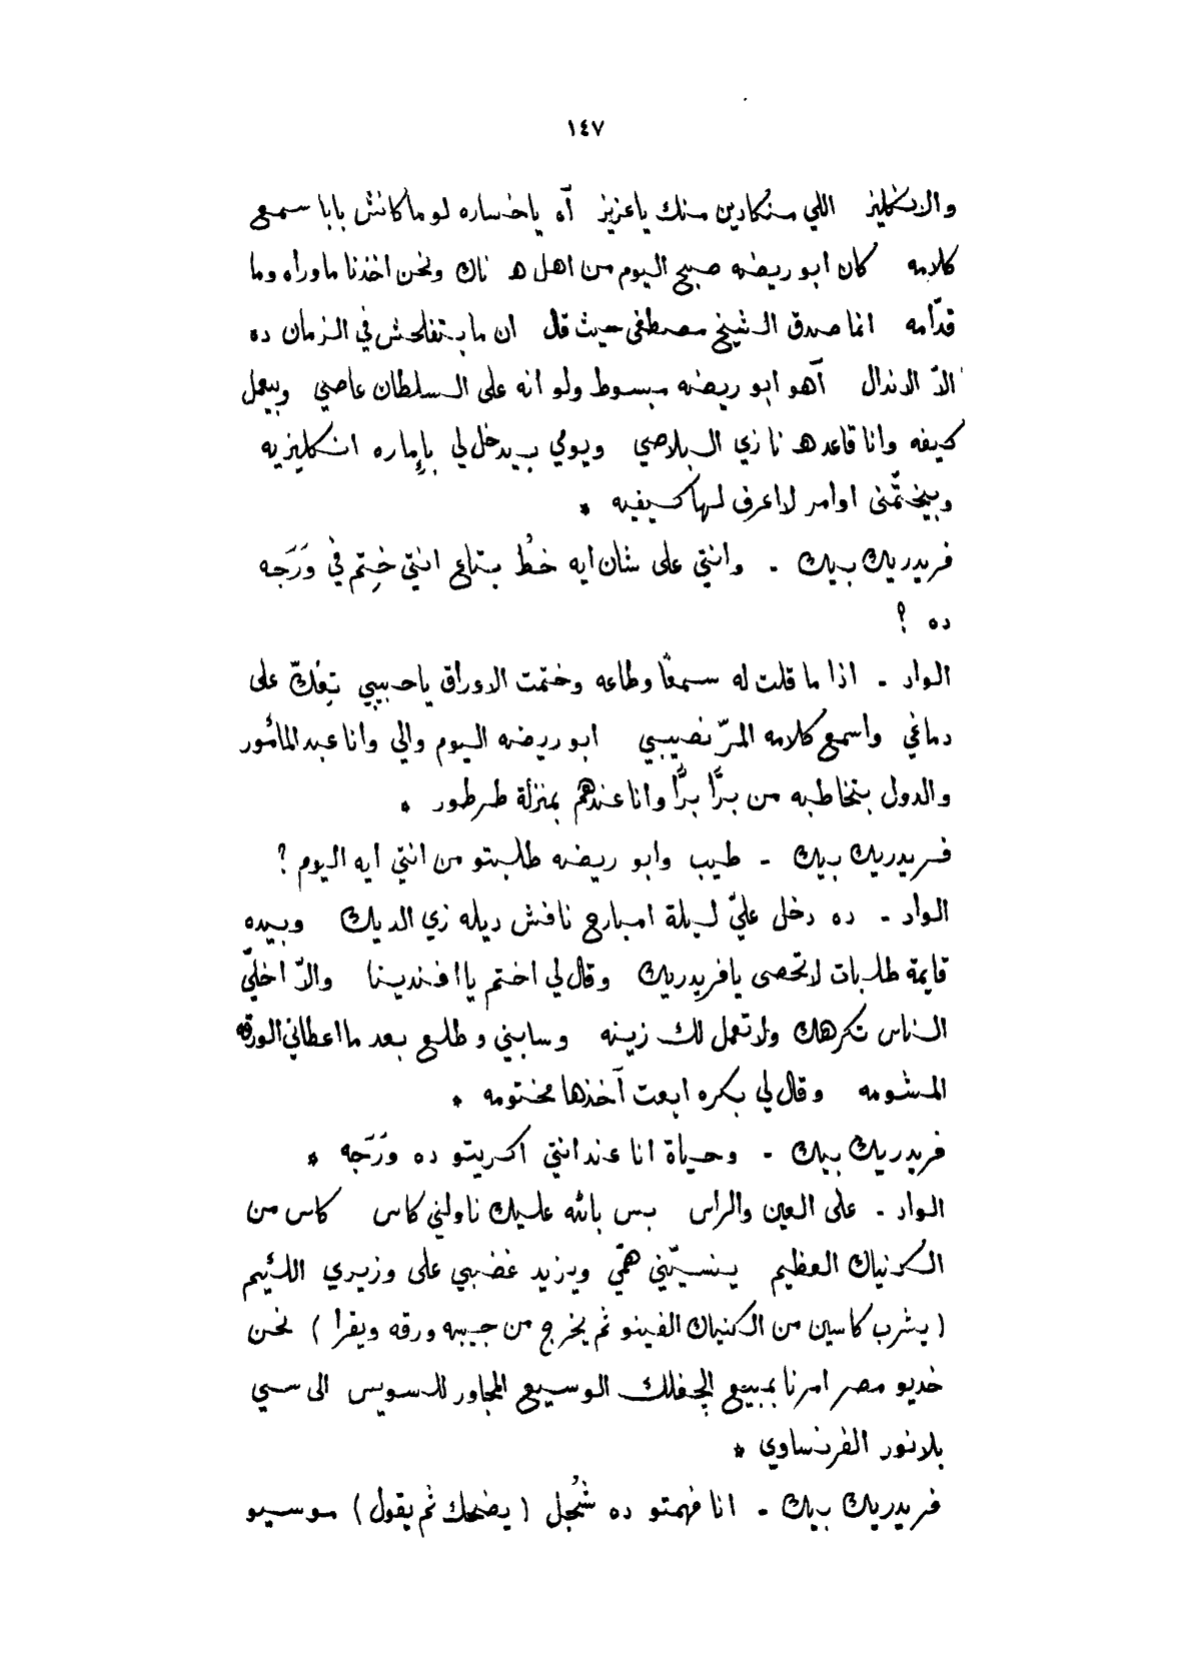 ١٤٧
والانكليز اللي منكادين منك ياعزيز آه ياخساره لو ماكانش بابا سمع
كلامه كان ابو ريضه صبح اليوم من اهل هناك ونحن اخذنا ماوراه وما
قدّامه انما صدق الشيخ مصطفى حيث قال ان مابتفلحش في الزمان ده
الاّ الاندال آهو ابو ريضه مبسوط ولو انه على السلطان عاصي وبيعمل
كيفه وانا قاعد هنا زي البلاصي ويومي بيدخل لي بإماره انكليزيه
وبيختّمنى اوامر لااعرف لها كيفيه *
فريدريك بيك - وانتي على شان ايه خطُ بتاع انتي خِتم في وَرَجه
ده ؟
الواد - اذا ما قلت له سمعًا وطاعه وختمت الاوراق ياحبيبي تِفِكّ على
دماغي واسمع كلامه المرّ نصيبي ابو ريضه اليوم والي وانا عبد المأمور
والدول بتخاطبه من برَّا برَّا وانا عندهم بمنزلة طرطور *
فريدريك بيك - طيب وابو ريضه طلبتو من انتي ايه اليوم ؟
الواد - ده دخل عليّ ليلة امبارح نافش ديله زي الديك وبيده
قايمة طلبات لاتحصى يافريدريك وقال لي اختم ياافندينا والاّ اخليّ
الناس تكرهك ولاتعمل لك زينه وسابني وطلع بعد مااعطاني الورقه
المشومه وقال لي بكره ابعت آخذها مختومه *
فريدريك بيك - وحياة انا عند انتي اكريتو ده وَرَجه *
الواد - على العين والراس بس بالله عليك ناولني كاس كاس من
الكونياك العظيم ينسيّني همّي ويزيد غضبي على وزيري اللئيم
( يشرب كاسين من الكنياك الفينو ثم يخرج من جيبه ورقه ويقرا ) نحن
خديو مصر امرنا بمبيع الجفلك الوسيع المجاور للسويس الى سي
بلانور الفرنساوي *
فريدريك بيك - انا فهمتو ده شُجل ( يضحك ثم يقول ) موسيو